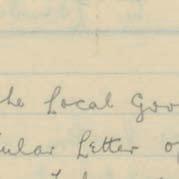 the Local Gov
ular Letter of